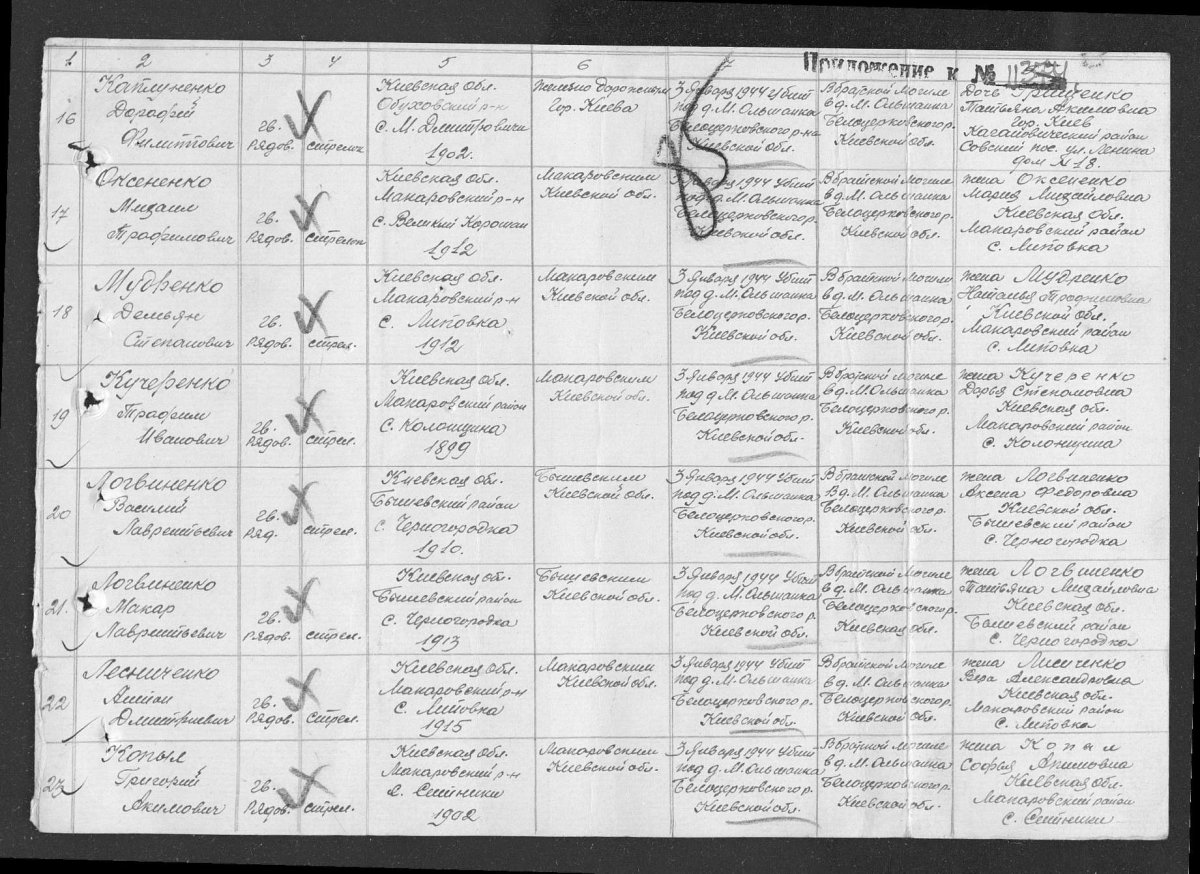 Приложение к №
1 2 3 4 5 6 7
16
Каплуненко
Дорофей
Филиппович
гв.
Рядов.
стрелок
Киевская обл.
Обуховский р-н
с. М. Дмитровичи
1902.
Железно дорожным
гор. Киева
3 Января 1944 Убит
под д. М. Ольшанка
Белоцерковского р-на
Киевской обл.
В братской могиле
в д. М. Ольшанка
Белоцерковского р.
Киевской обл.
Дочь Грищенко
Татьяна Акимовна
гор. Киев
Кагановический район
Совский пос. ул. Ленина
дом № 18.
17
Оксененко
Михаил
Трофимович
гв.
Рядов.
стрелок
Киевская обл.
Макаровский р-н
с. Великий Карашин
1912
Макаровским
Киевской обл.
3 Января 1944 Убит
под д. М. Ольшанка
Белоцерковского р.
Киевской обл.
В братской могиле
в д. М. Ольшанка
Белоцерковского р.
Киевской обл.
жена Оксененко
Мария Михайловна
Киевская обл.
Макаровский район
с. Липовка
18
Мудренко
Демьян
Степанович
гв.
Рядов.
стрел.
Киевская обл.
Макаровский р-н
с. Липовка
1912
Макаровским
Киевской обл.
3 Января 1944 Убит
под д. М. Ольшанка
Белоцерковского р.
Киевской обл.
В братской могиле
в д. М. Ольшанка
Белоцерковского р.
Киевской обл.
жена Мудренко
Наталья Трофимовна
Киевской обл.
Макаровский район
с. Липовка
19
Кучеренко
Трофим
Иванович
гв.
Рядов.
стрел.
Киевская обл.
Макаровский район
с. Колонщина
1899
Макаровским
Киевской обл.
3 Января 1944 Убит
под д. М. Ольшанка
Белоцерковского р.
Киевской обл.
В братской могиле
в д. М. Ольшанка
Белоцерковского р.
Киевской обл.
жена Кучеренко
Дарья Степановна
Киевская обл.
Макаровский район
с. Колонщина
20
Логвиненко
Василий
Лаврентьевич
гв.
Ряд.
стрел.
Киевская обл.
Бышевский район
с. Черногородка
1910.
Бышевским
Киевской обл.
3 Января 1944 Убит
под д. М. Ольшанка
Белоцерковского р.
Киевской обл.
В братской могиле
в д. М. Ольшанка
Белоцерковского р.
Киевской обл.
жена Логвиненко
Аксена Федоровна
Киевской обл.
Бышевский район
с. Черногородка
21.
Логвиненко
Макар
Лаврентьевич
гв.
Рядов.
стрел.
Киевская обл.
Бышевский район
с. Черногородка
1913
Бышевским
Киевской обл.
3 Января 1944 Убит
под д. М. Ольшанка
Белоцерковского р.
Киевской обл.
В братской могиле
в д. М. Ольшанка
Белоцерковского р.
Киевской обл.
жена Логвиненко
Татьяна Михайловна
Киевская обл.
Бышевский район
с. Черногородка
22
Лесниченко
Антон
Дмитриевич
гв.
Рядов.
стрел.
Киевская обл.
Макаровский р-н
с. Липовка
1915
Макаровским
Киевской обл.
3 Января 1944 Убит
под д. М. Ольшанка
Белоцерковского р.
Киевской обл.
В братской могиле
в д. М. Ольшанка
Белоцерковского р.
Киевской обл.
жена Лисиченко
Вера Александровна
Киевская обл.
Макаровский район
с. Липовка
23
Копыл
Григорий
Акимович
гв.
Рядов.
стрел.
Киевская обл.
Макаровский р-н
с. Ситники
1902
Макаровским
Киевской обл.
3 Января 1944 Убит
под д. М. Ольшанка
Белоцерковского р.
Киевской обл.
В братской могиле
в д. М. Ольшанка
Белоцерковского р.
Киевской обл.
жена Копыл
Софья Акимовна
Киевская обл.
Макаровский район
с. Ситники